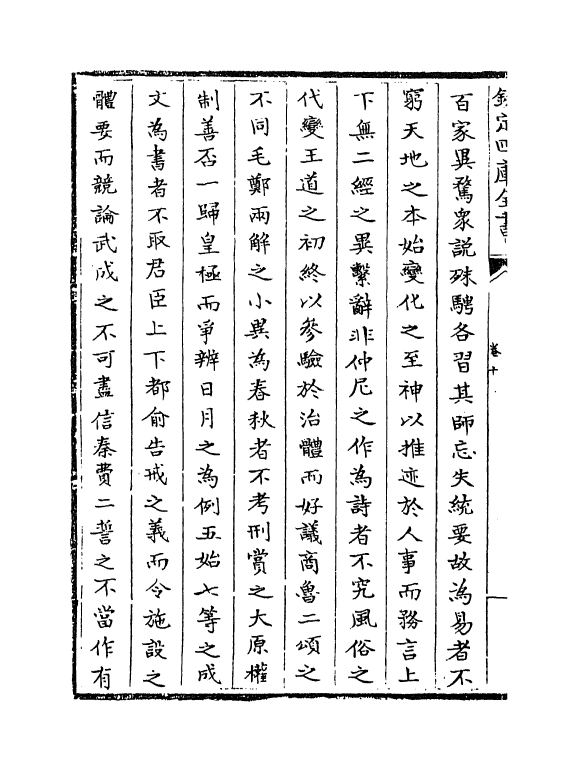 欽定四庫全書
卷十
百家異騖衆說殊騁各習其師忘失統要故為易者不
窮天地之本始變化之至神以推迹於人事而務言上
下無二經之異繫辭非仲尼之作為詩者不究風俗之
代變王道之初終以參驗於治體而好議商魯二頌之
不同毛鄭兩解之小異為春秋者不考刑賞之大原權
制善否一歸皇極而爭辨日月之為例五始七等之成
文為書者不取君臣上下都俞告戒之義而令施設之
體要而競論武成之不可盡信秦費二誓之不當作有